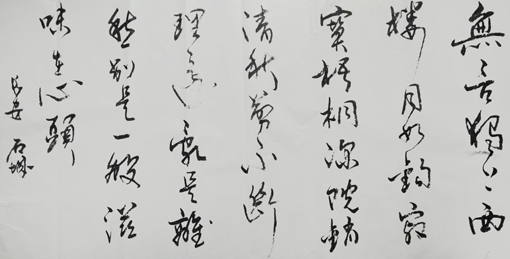 無言獨上西
樓月如鉤寂
寞梧桐深院鎖
清秋剪不斷
理還亂是離
愁別是一般滋
味在心頭
長安